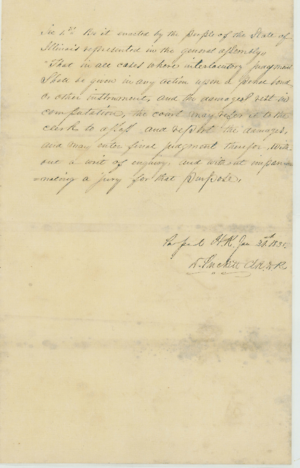 Sec 1st Be it enacted by the people of the State of
Illinois represented in the general assembly
That in all cases where interlocutory judgment
shall be given in any action upon a penal bond
or other instrument, and the damages rest in
computation, the court may refer it to the
clerk to assess and report the damages,
and may enter final judgment therefor with-
out a writ of enquiry and without impan-
neling a jury for that purpose.
Passed H.R. Jan
Prickett Clk H.R.